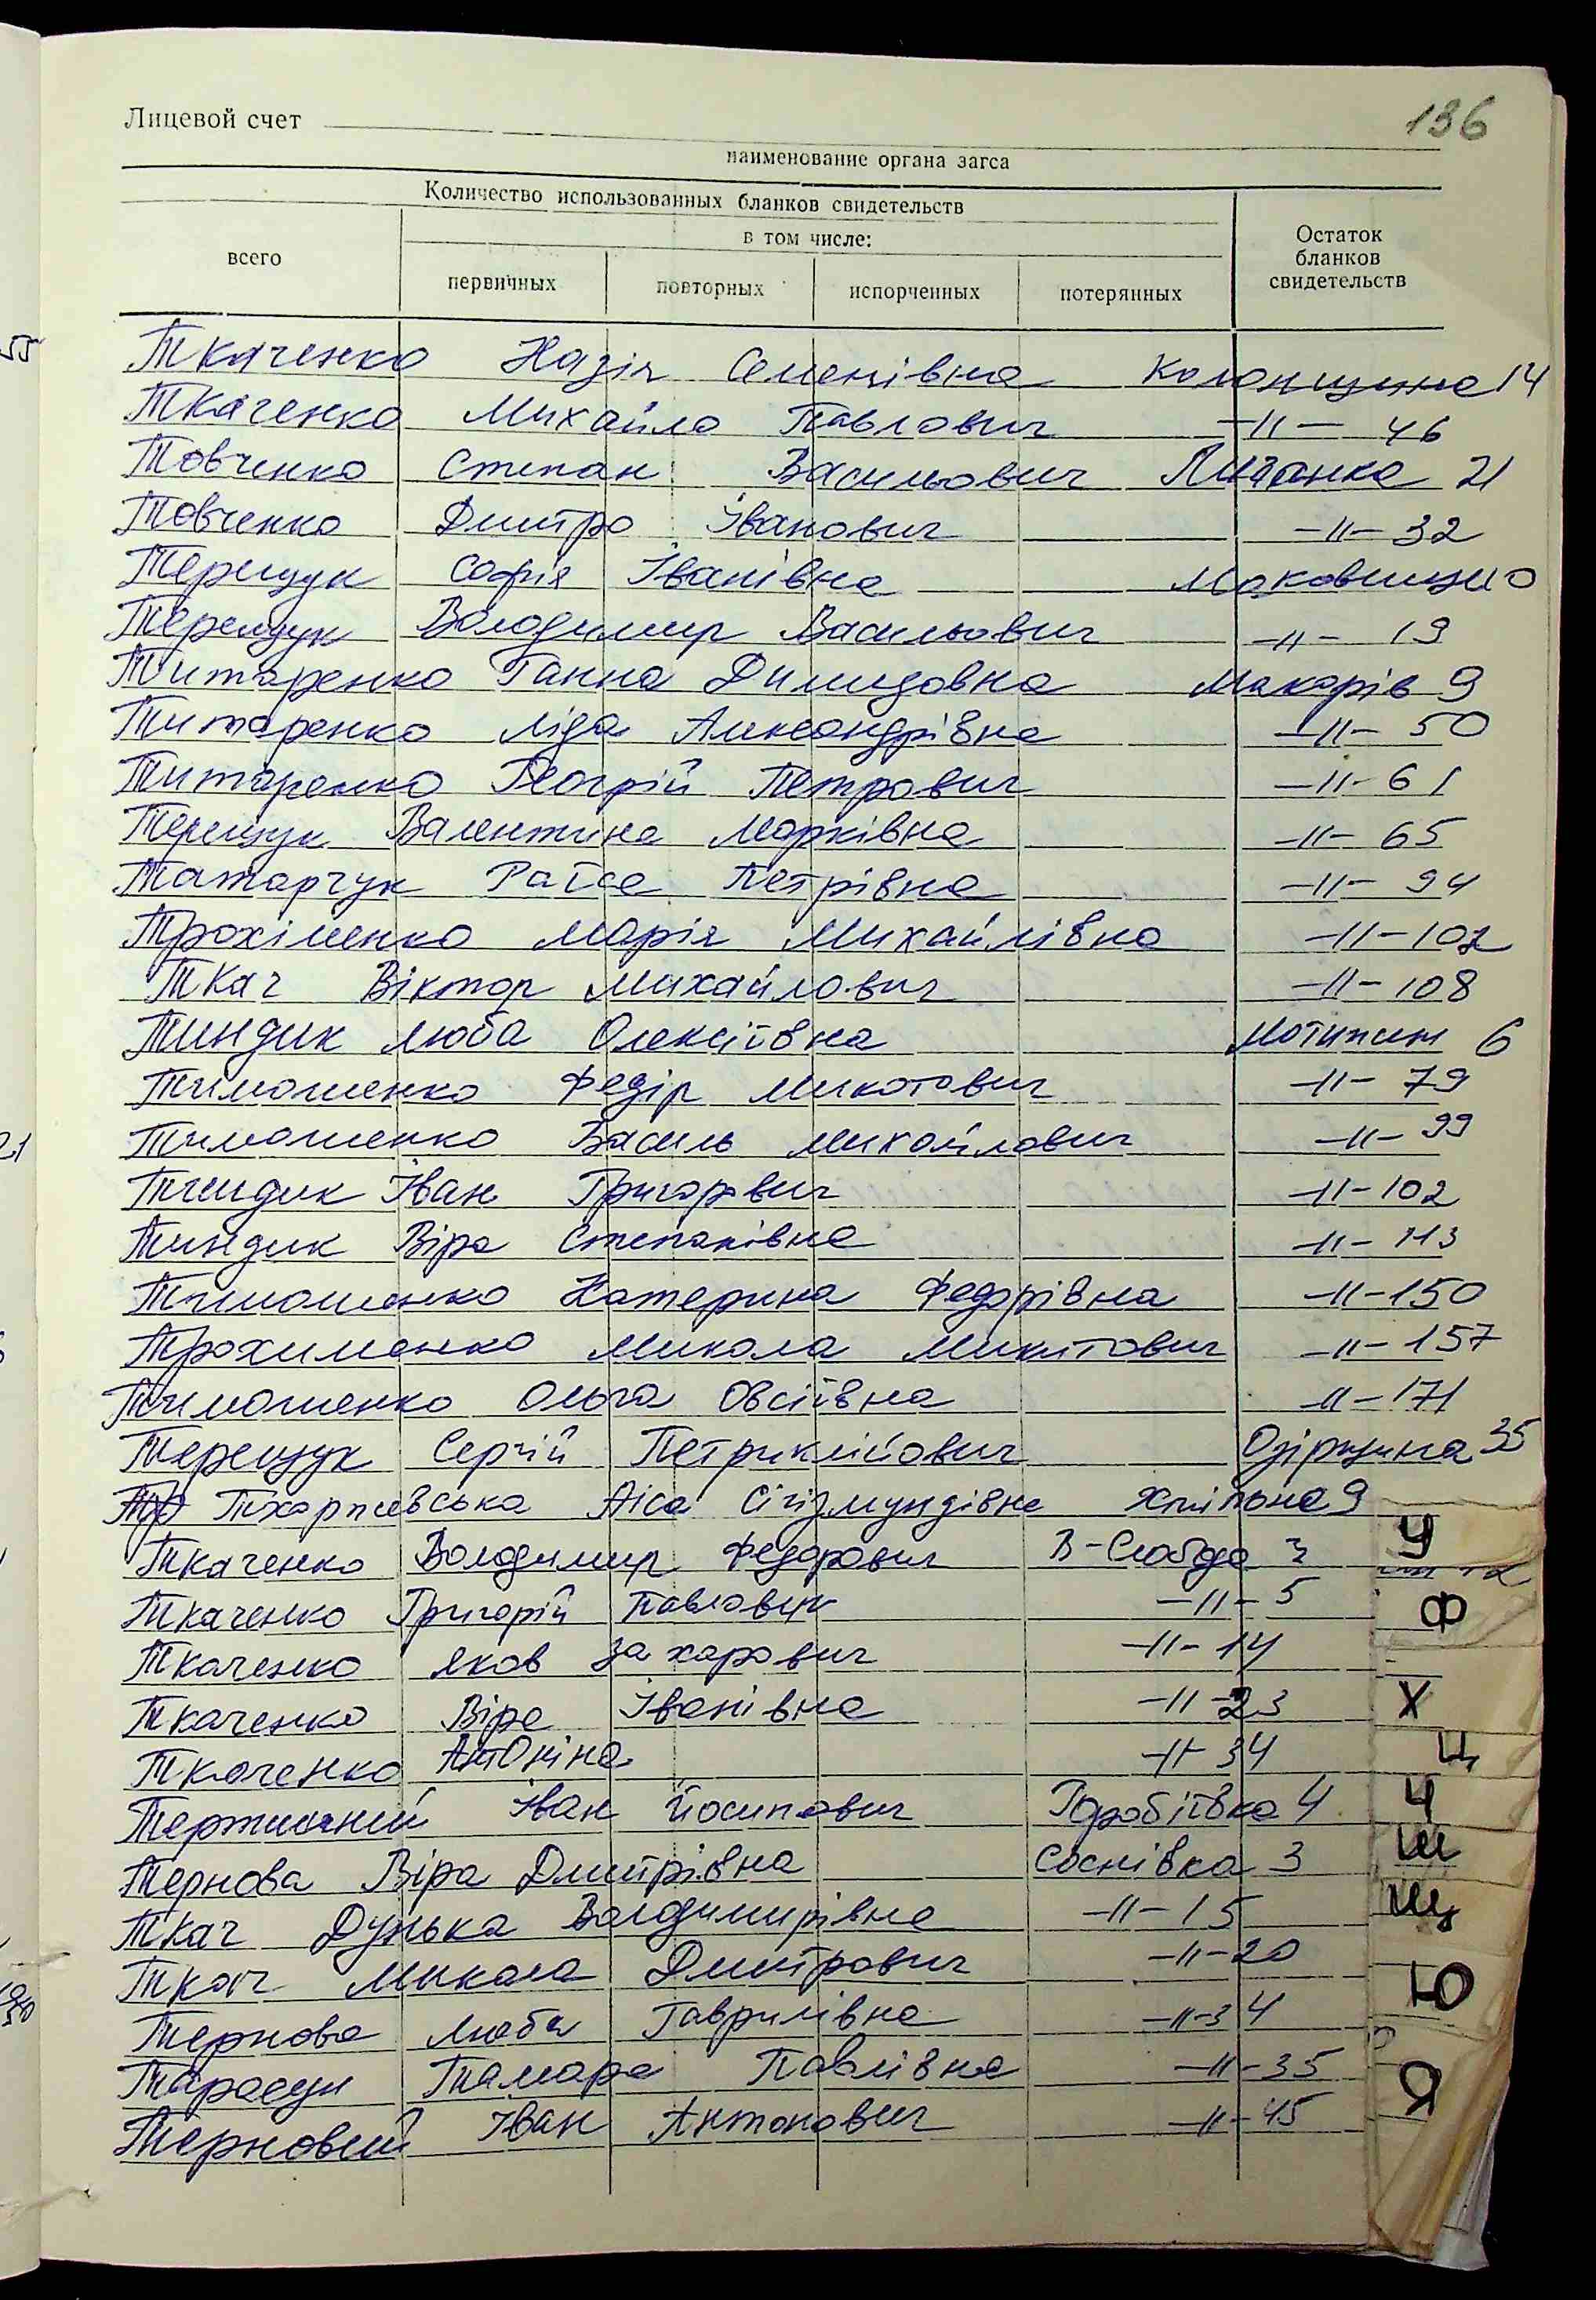 136
Лицевой счет
наименование органа загса
Количество использованных бланков свидетельств
в том числе:
всего
первичных повторных испорченных потерянных
Остаток бланков свидетельств
55
Ткаченко Надія Семенівна Колонщина 14
Ткаченко Михайло Павлович -11- 46
Товченко Степан Васильович Липянка 21
Товченко Дмитро Іванович -11- 32
Терещук Софія Іванівна Маковище 10
Терещук Володимир Васильович -11- 19
Титаренко Ганна Демидовна Макарів 9
Титаренко Ліда Александрівна -11- 50
Титаренко Георгій Петрович -11- 61
Терещук Валентина Марківна -11- 65
Татарчук Раїса Петрівна -11- 94
Трохіменко Марія Михайлівна -11- 102
Ткач Віктор Михайлович -11- 108
Тиндик Люба Олексіївна Мотижин 6
Тимошенко Федір Микотович -11- 79
21
Тимошенко Василь Михайлович -11- 99
Тиндик Іван Григорович -11- 102
Тиндик Віра Степанівна -11- 113
Тимошенко Катерина Федорівна -11- 150
Трохименко Микола Микитович -11- 157
Тимошенко Ольга Овсіївна -11- 171
Терещук Сергій Озірщина 35
Аіса Сігізмундівна Хмільна 9
Ткаченко Володимир Федорович В-Слобода 3
У
Ткаченко Григорій Павлович -11- 5
Ф
Ткаченко Яков Захарович -11- 14
Ткаченко Віра Іванівна -11- 23
Х
Ткаченко Антоніна -11- 34
Ц
Іван Йосипович Горобіївка 4
Ч
Тернова Віра Дмитрівна Соснівка 3
Ш
Ткач Дунька Володимирівна -11- 15
Щ
Ткач Микола Дмитрович -11- 20
Ю
Тернова Люба Гаврилівна -11- 34
Тарасун Тамара Павлівна -11- 35
Я
Терновий Іван Антонович -11- 45